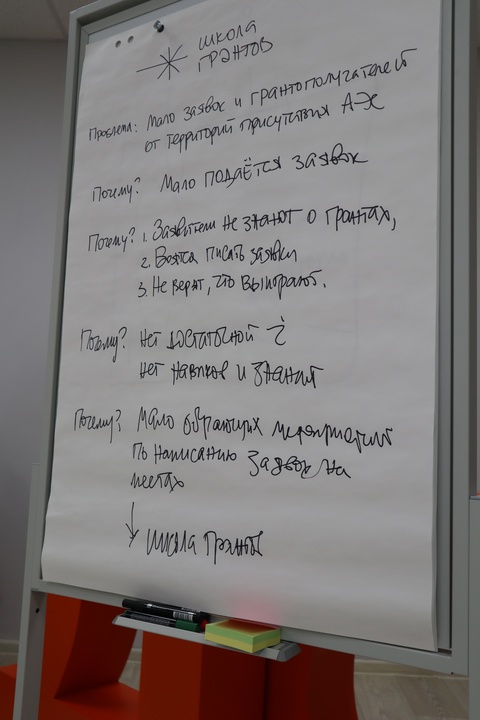 школа
грантов
Проблема: Мало заявок и грантополучателей
от территорий присутствия А-Х
Почему? Мало подаётся заявок
Почему? 1. Заявители не знают о грантах,
2. Боятся писать заявки
3. Не верят, что выиграют.
Почему? Нет достаточной i
нет навыков и знаний
Почему? Мало обучающих мероприятий
по написанию заявок на
местах
школа грантов